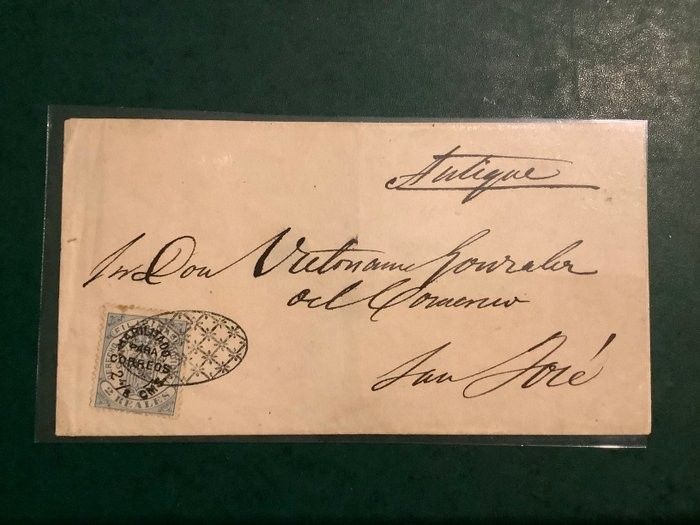 Antique
Sr Don Victoriano Gonzalez
del Comercio
San José
HABILITADO
PARA
CORREOS
2 4/8 CMS
2 REALES